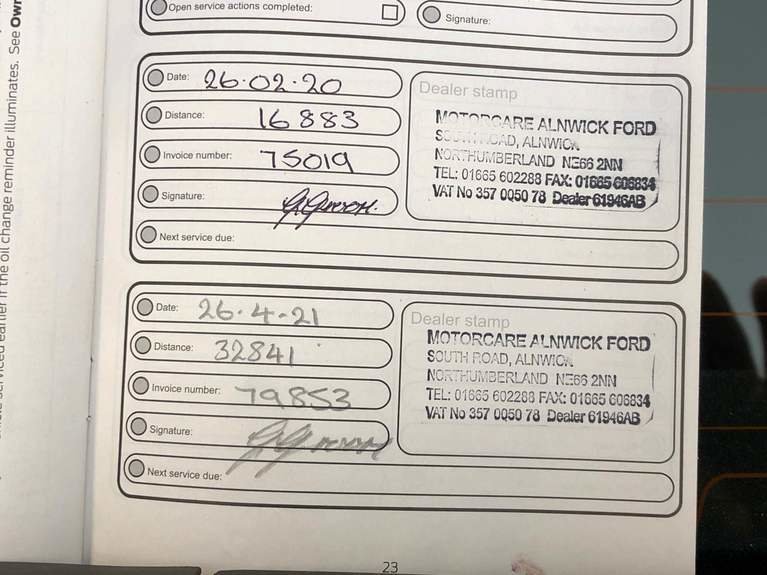 vehicle serviced earlier if the oil change reminder illuminates. See Own
Open service actions completed:
Signature:
Date: 26.02.20
Distance: 16883
Invoice number: 75019
Signature:
Next service due:
Dealer stamp
MOTORCARE ALNWICK FORD
SOUTH ROAD, ALNWICK
NORTHUMBERLAND NE66 2NN
TEL: 01665 602288 FAX: 01665 606834
VAT No 357 0050 78 Dealer 61946AB
Date: 26.4-21
Distance: 32841
Invoice number: 79853
Signature:
Next service due:
Dealer stamp
MOTORCARE ALNWICK FORD
SOUTH ROAD, ALNWICK
NORTHUMBERLAND NE66 2NN
TEL: 01665 602288 FAX: 01665 606834
VAT No 357 0050 78 Dealer 61946AB
23